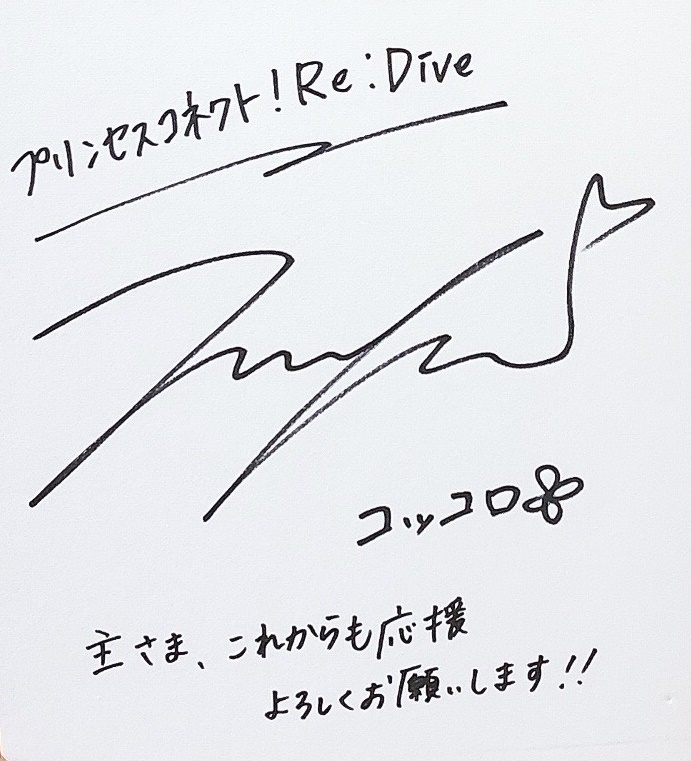 プリンセスコネクト!Re:Dive
コッコロ
主さま、これからも応援
よろしくお願いします!!